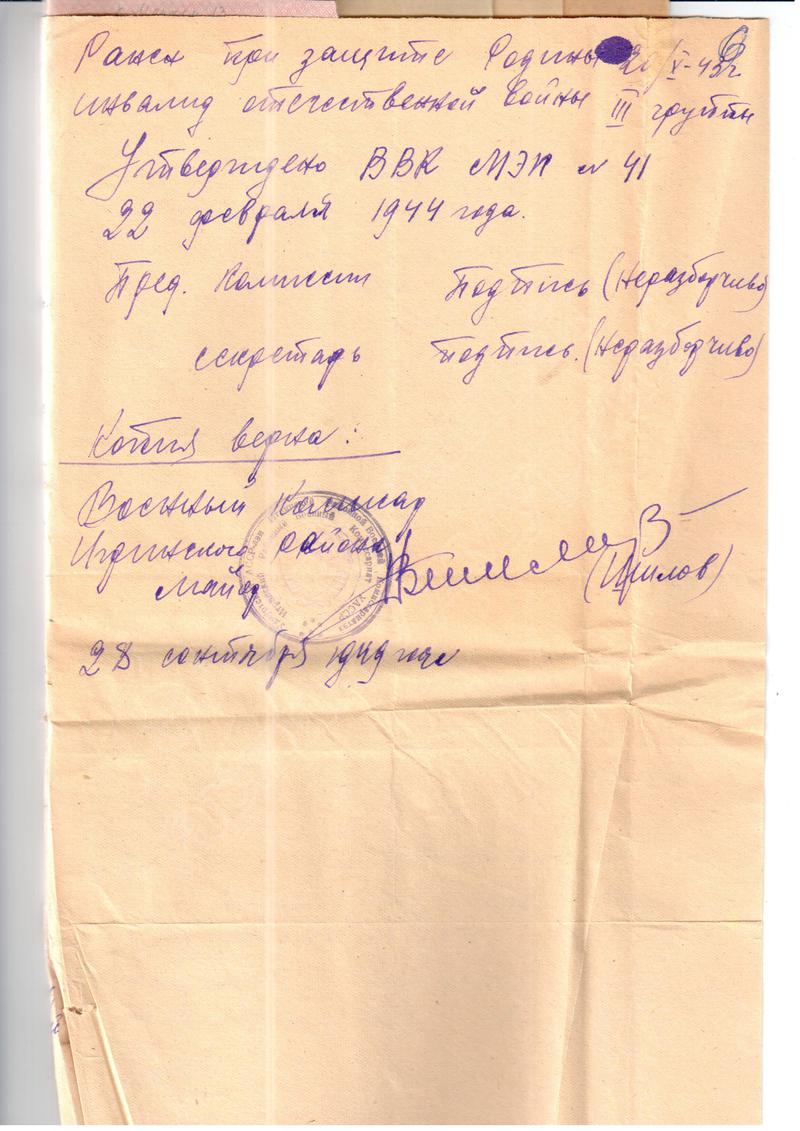 Ранен при защите Родины 20/X-43г
инвалид отечественной войны III группы
Утверждено ВВК МЭП N 41
22 февраля 1944 года.
Пред. комиссии Подпись (Неразборчиво)
секретарь подпись. (Неразборчиво)
Копия верна:
Военный Комиссар
Игринского района
майор (Шилов)
28 сентября 1949 года